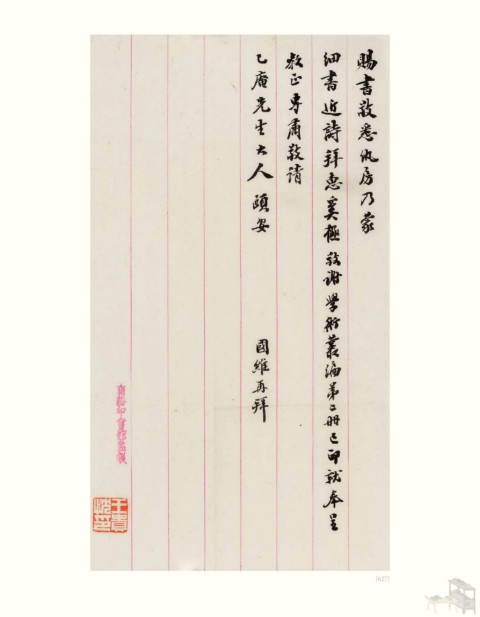 賜書敬悉房乃蒙
細書近詩拜惠奚極敬謝學術叢編第二册已印就奉呈
教正專肅敬請
乙庵先生大人頤安
國維再拜
王貴忱印